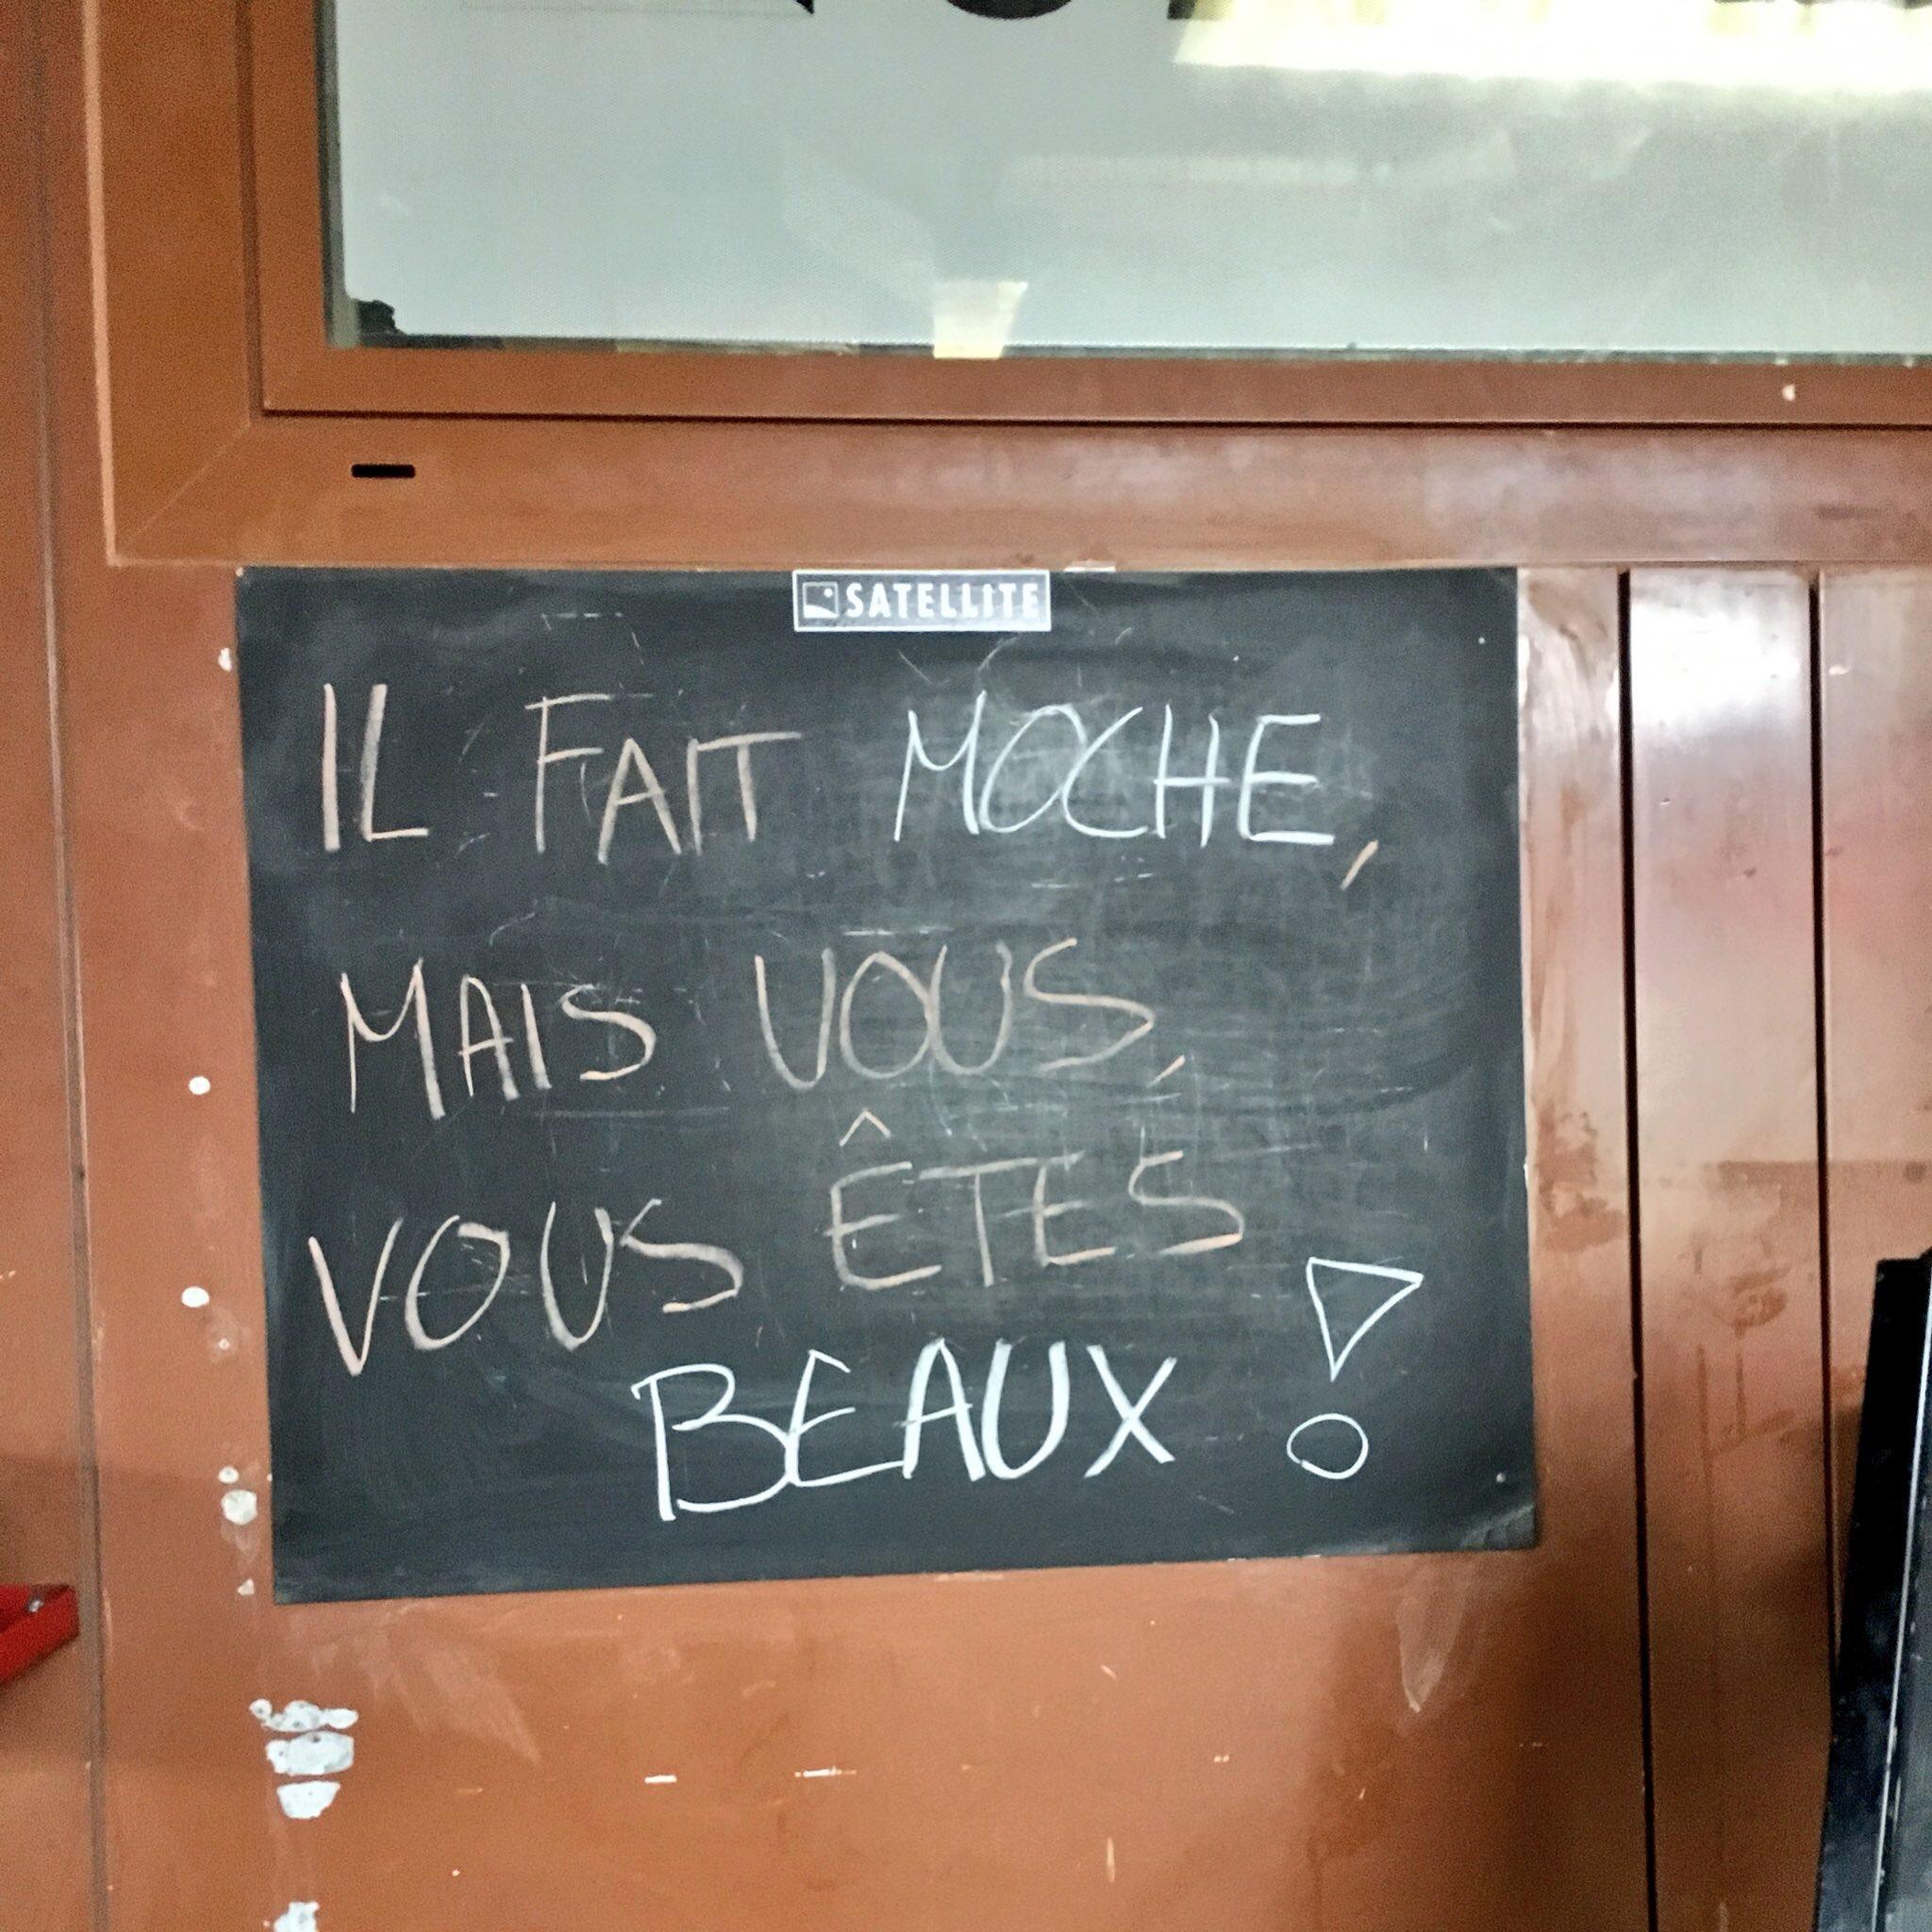 SATELLITE
IL FAIT MOCHE,
MAIS VOUS,
VOUS ÊTES
BEAUX !